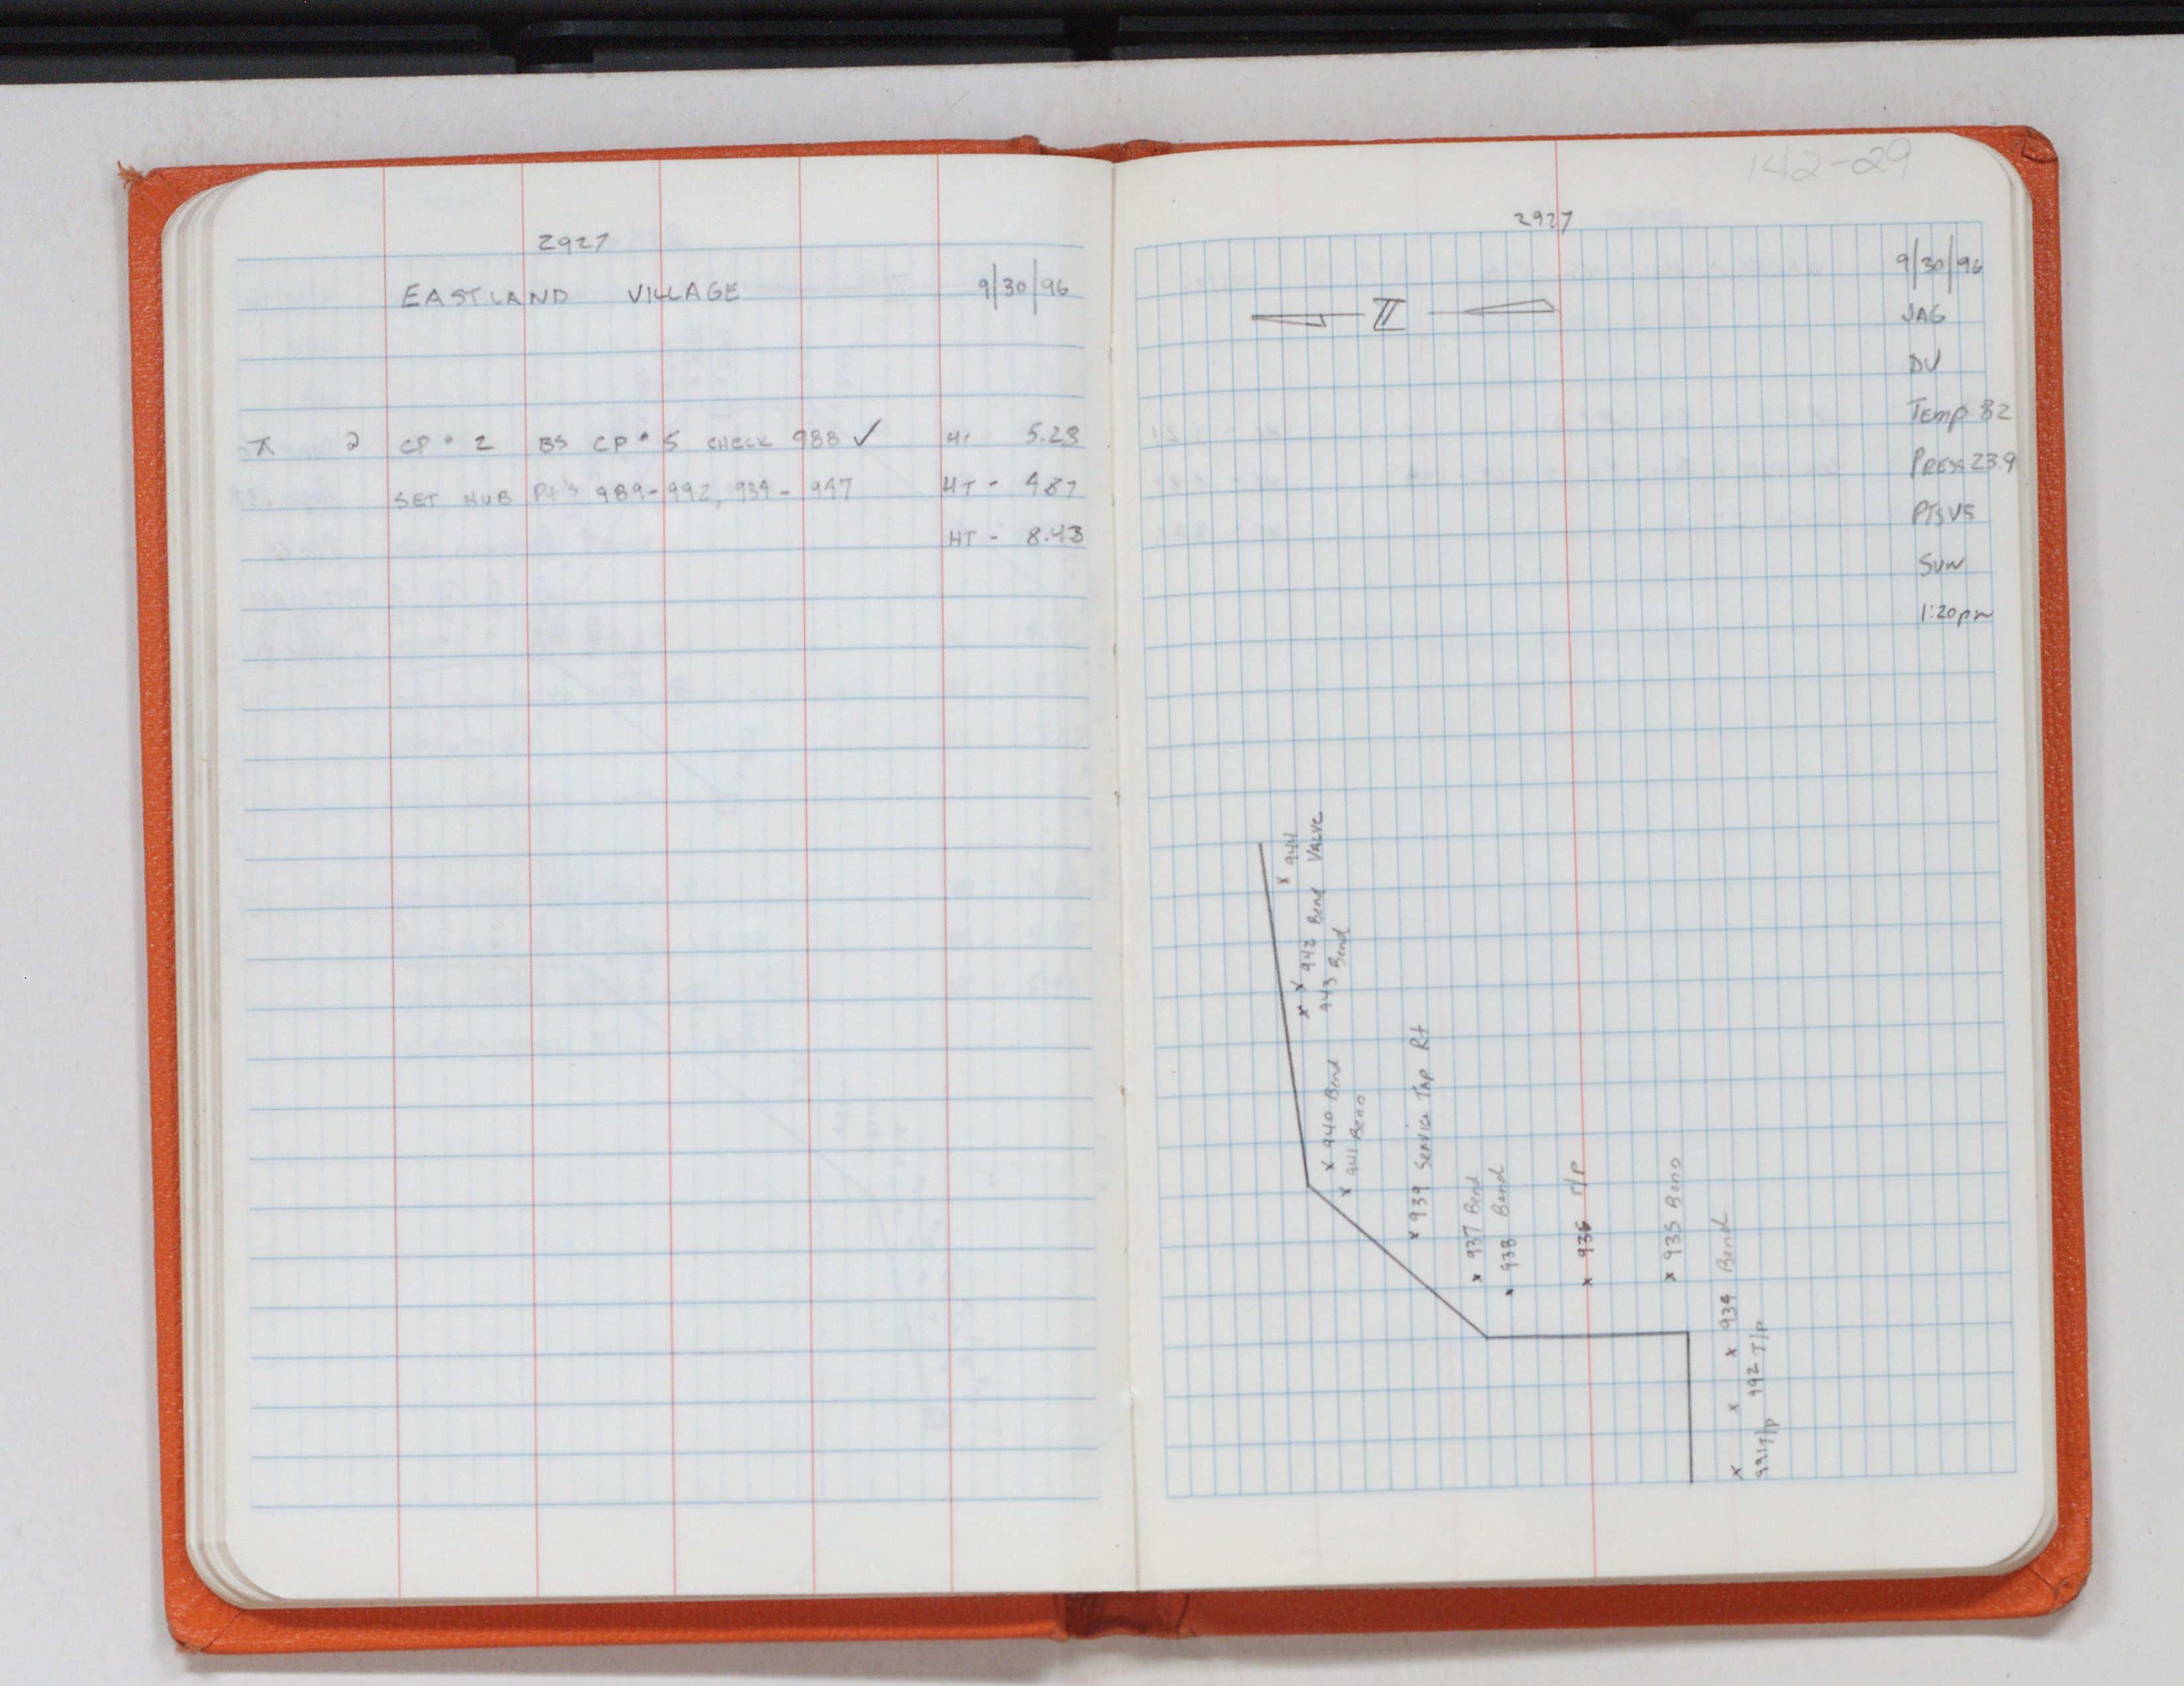 2927
EASTLAND VILLAGE 9/30/96
⊼ 2 CP # 2 BS CP # 5 CHECK 988 ✓ HI 5.28
SET HUB Pt's 989-992, 934-947 HT - 4.87
HT - 8.43
142-29
2927
9/30/96
JAG
DV
Temp 82
Press 23.9
PTSV5
SUN
1:20pm
x 944
VALVE
x x 942 Bend
943 Bend
x 940 Bend
x 941 Bend
x 939 Service TAP Rt
x 937 Bend
x 938 Bend
x 936 T/P
x 935 Bend
x 934 Bend
x 992 T/P
x 991 T/P